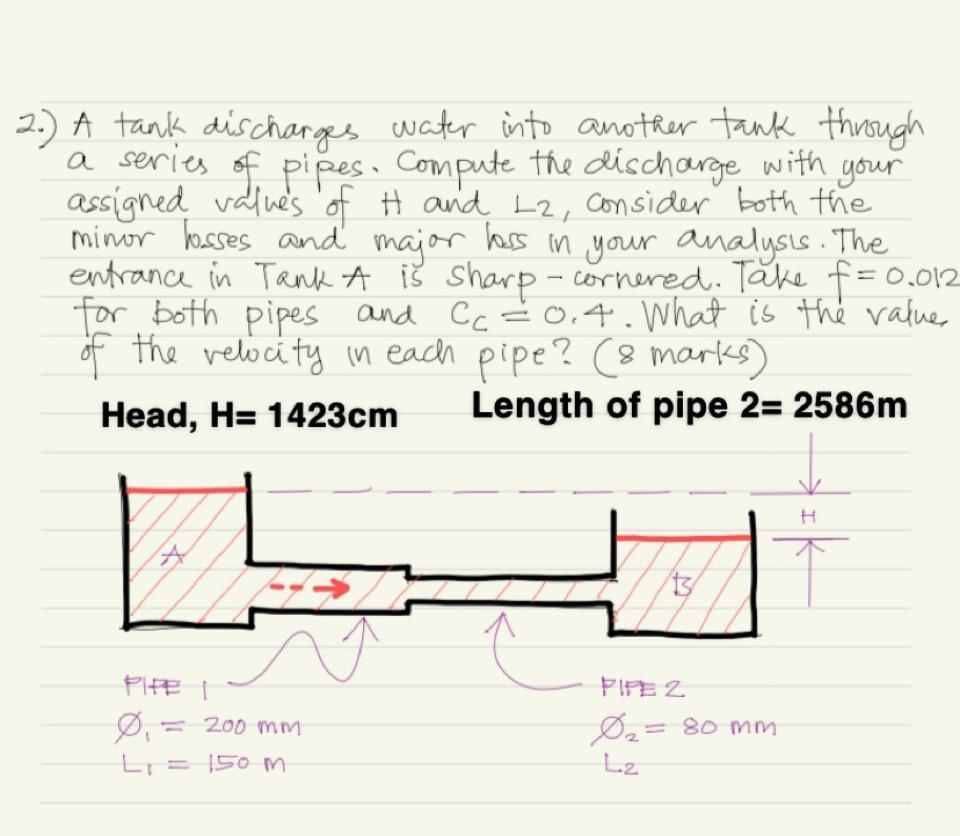 2.) A tank discharges water into another tank through
a series of pipes. Compute the discharge with your
assigned values of H and L2, consider both the
minor losses and major loss in your analysis. The
entrance in Tank A is sharp-cornered. Take f = 0.012
for both pipes and Cc = 0.4. What is the value
of the velocity in each pipe? (8 marks)
Head, H= 1423cm
Length of pipe 2= 2586m
H
A
B
PIPE 1
PIPE 2
Ø1 = 200 mm
Ø2 = 80 mm
L1 = 150 m
L2